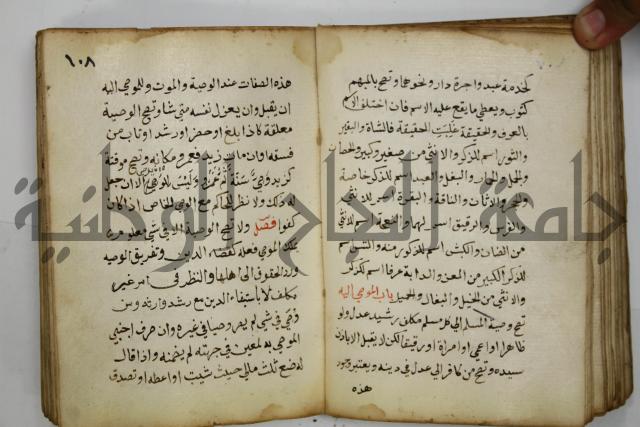 كخدمة عبد واجرة دار ونحوهما وتصح بالمبهم
كثوب ويعطى ما يقع عليه الاسم فان اختلف الاسم
بالعرف والحقيقة غلبت الحقيقة فالشاة والبعير
والثور اسم للذكر والانثى من صغير وكبير والحصان
والجمل والحمار والبغل والعبد اسم للذكر خاصة
والحجر والاتان والناقة والبقرة اسم للانثى
والفرس والرقيق اسم لهما والنعجة اسم للانثى
من الضان والكبش اسم للذكر الكبير منه والتيس اسم
للذكر الكبير من المعز والدابة عرفا اسم للذكر
والانثى من الخيل والبغال والحمير باب الموصى اليه
تصح وصية المسلم الى كل مسلم مكلف رشيد عدل ولو
ظاهرا او اعمى او امراة او رقيقا لكن لا يقبل الا باذن
سيده وتصح من كافر الى عدل في دينه ويعتبر وجود
هذه
١٠٨
هذه الصفات عند الوصية والموت وللموصى اليه
ان يقبل وان يعزل نفسه متى شا وتصح الوصية
معلقة كاذا بلغ او حضر او رشد او تاب من
فسقه او ان مات زيد فعمرو مكانه وتصح موقتة
كزيد وصي سنة ثم عمرو وليس للوصي ان يوصي الا ان جعل
له ذلك ولا نظر للحاكم مع الوصي الخاص اذا كان
كفوا فصل ولا تصح الوصية الا في شي معلوم
يملك الموصي فعله كقضا الدين وتفريق الوصية
ورد الحقوق الى اهلها والنظر في امر غير
مكلف لا باستيفاء الدين مع رشد وارثه ومن
وصي في شي لم يصر وصيا في غيره وان صرف اجنبي
الموصى به لمعين في جهته لم يضمنه واذا قال
له ضع ثلث مالي حيث شيت او اعطه او تصدق
جامعة النجاح الوطنية